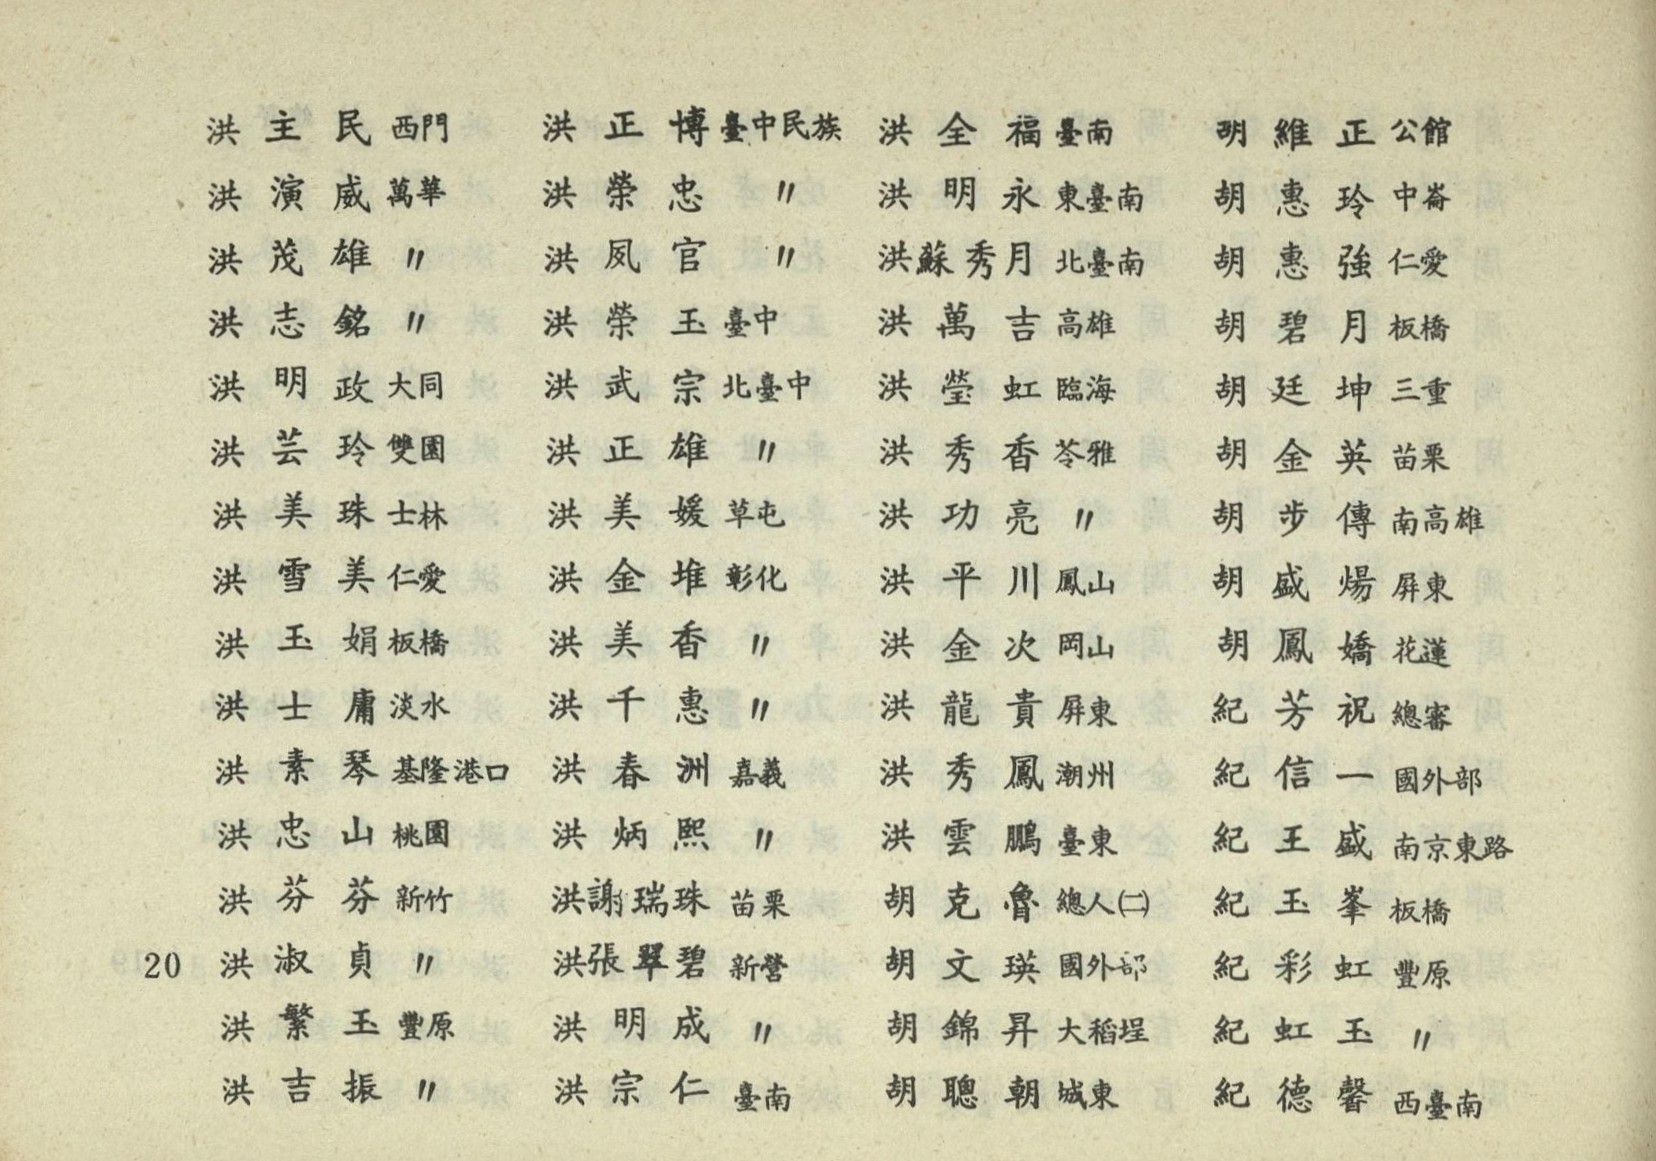 洪主民 西門
洪演威 萬華
洪茂雄 〃
洪志銘 〃
洪明政 大同
洪芸玲 雙園
洪美珠 士林
洪雪美 仁愛
洪玉娟 板橋
洪士庸 淡水
洪素琴 基隆港口
洪忠山 桃園
洪芬芬 新竹
洪淑貞 〃
洪繁玉 豐原
洪吉振 〃
洪正博 臺中民族
洪榮忠 〃
洪夙官 〃
洪榮玉 臺中
洪武宗 北臺中
洪正雄 〃
洪美媛 草屯
洪金堆 彰化
洪美香 〃
洪千惠 〃
洪春洲 嘉義
洪炳熙 〃
洪謝瑞珠 苗栗
洪張翠碧 新營
洪明成 〃
洪宗仁 臺南
洪全福 臺南
洪明永 東臺南
洪蘇秀月 北臺南
洪萬吉 高雄
洪瑩虹 臨海
洪秀香 苓雅
洪功亮 〃
洪平川 鳳山
洪金次 岡山
洪龍貴 屏東
洪秀鳳 潮州
洪雲鵬 臺東
胡克魯 總人㈡
胡文瑛 國外部
胡錦昇 大稻埕
胡聰朝 城東
胡維正 公館
胡惠玲 中崙
胡惠強 仁愛
胡碧月 板橋
胡廷坤 三重
胡金英 苗栗
胡步傳 南高雄
胡盛煬 屏東
胡鳳嬌 花蓮
紀芳祝 總審
紀信一 國外部
紀王盛 南京東路
紀玉峯 板橋
紀彩虹 豐原
紀虹玉 〃
紀德馨 西臺南
20